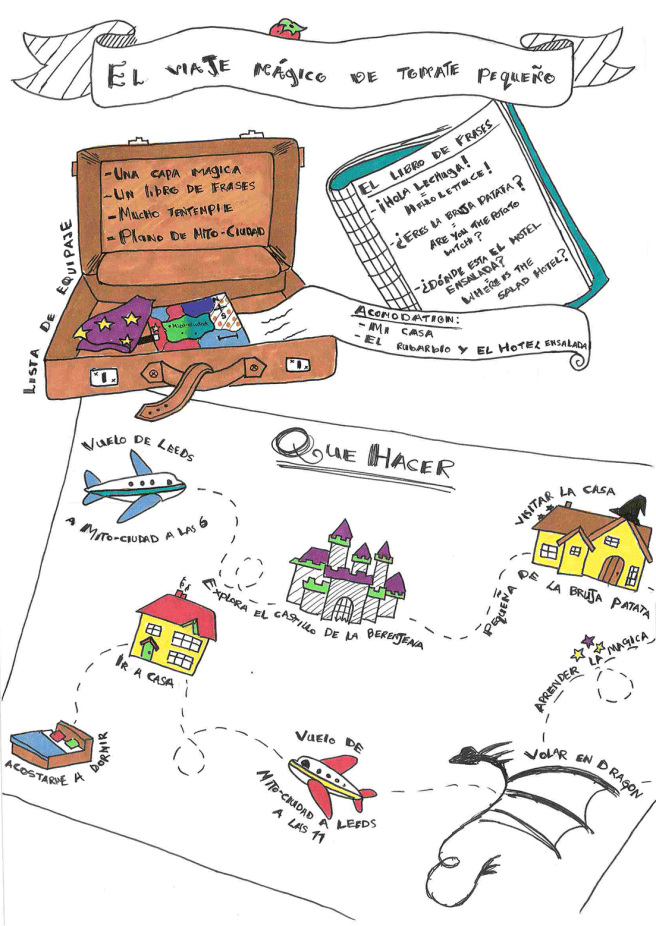 EL VIAJE MÁGICO DE TOMATE PEQUEÑO
LISTA DE EQUIPAJE
- UNA CAPA MAGICA
- UN LIBRO DE FRASES
- MUCHO TENTEMPIE
- PLANO DE MITO-CIUDAD
Mito-ciudad
EL LIBRO DE FRASES
- ¡HOLA LECHUGA!
=
HELLO LETTUCE!
- ¿ERES LA BRUJA PATATA?
=
ARE YOU THE POTATO
WITCH?
- ¿DÓNDE ESTA EL HOTEL
ENSALADA?
=
WHERE IS THE
SALAD HOTEL?
ACOMODATION:
- MI CASA
- EL RUBARBIO Y EL HOTEL ENSALADA
QUE HACER
VUELO DE LEEDS
A MITO-CIUDAD A LAS 6
EXPLORA EL CASTILLO DE LA BERENJENA
VISITAR LA CASA
PEQUEÑA DE LA BRUJA PATATA
APRENDER LA MAGICA
VOLAR EN DRAGON
VUELO DE
MITO-CIUDAD A LEEDS
A LAS 11
IR A CASA
ACOSTARME A DORMIR